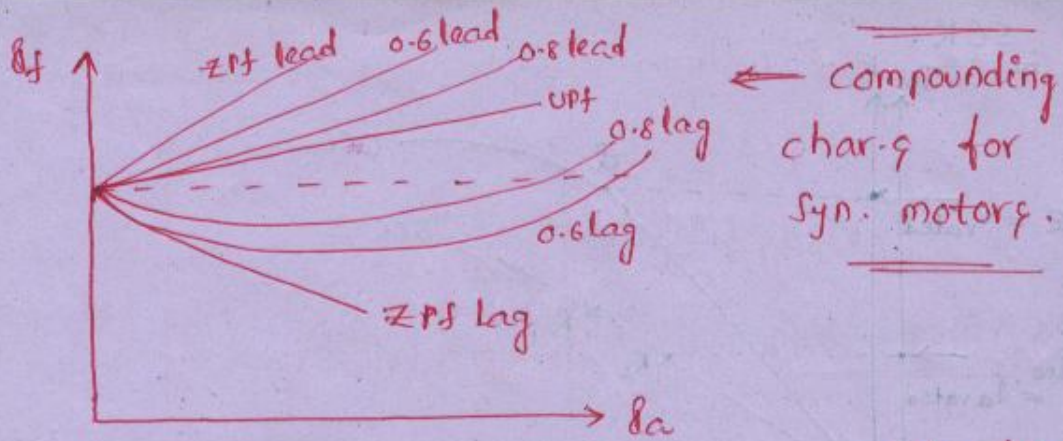 If
ZPf lead
0.6 lead
0.8 lead
UPf
0.8 lag
0.6 lag
ZPf Lag
Ia
← Compounding
char.s for
Syn. motors.